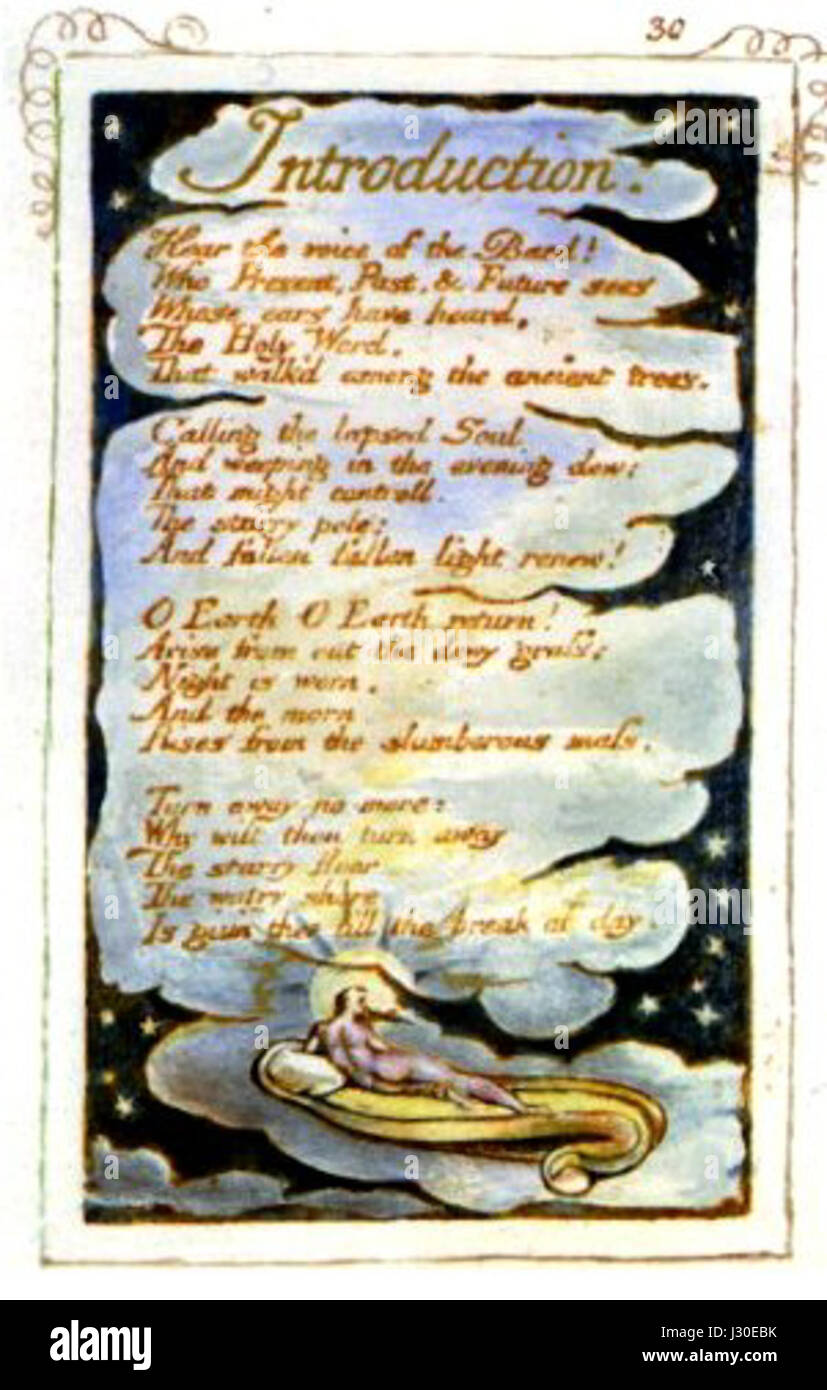 30
Introduction.
Hear the voice of the Bard!
Who Present, Past, & Future sees
Whose ears have heard,
The Holy Word,
That walk'd among the ancient trees.
Calling the lapsed Soul
And weeping in the evening dew:
That might controll.
The starry pole;
And fallen fallen light renew!
O Earth O Earth return!
Arise from out the dewy grass;
Night is worn,
And the morn
Rises from the slumberous mass.
Turn away no more:
Why wilt thou turn away
The starry floor
The watry shore
Is giv'n thee till the break of day.
alamy
alamy
Image ID: J30EBK
www.alamy.com